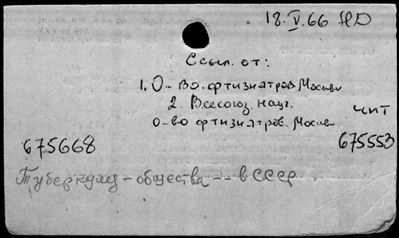 18.V.66 НО
Ссыл. от:
1. О-во фтизиатров Москвы
2. Всесоюз. науч.
о-во фтизиатров. Москва
чит
675668
675553
Туберкулез - общества -- в СССР